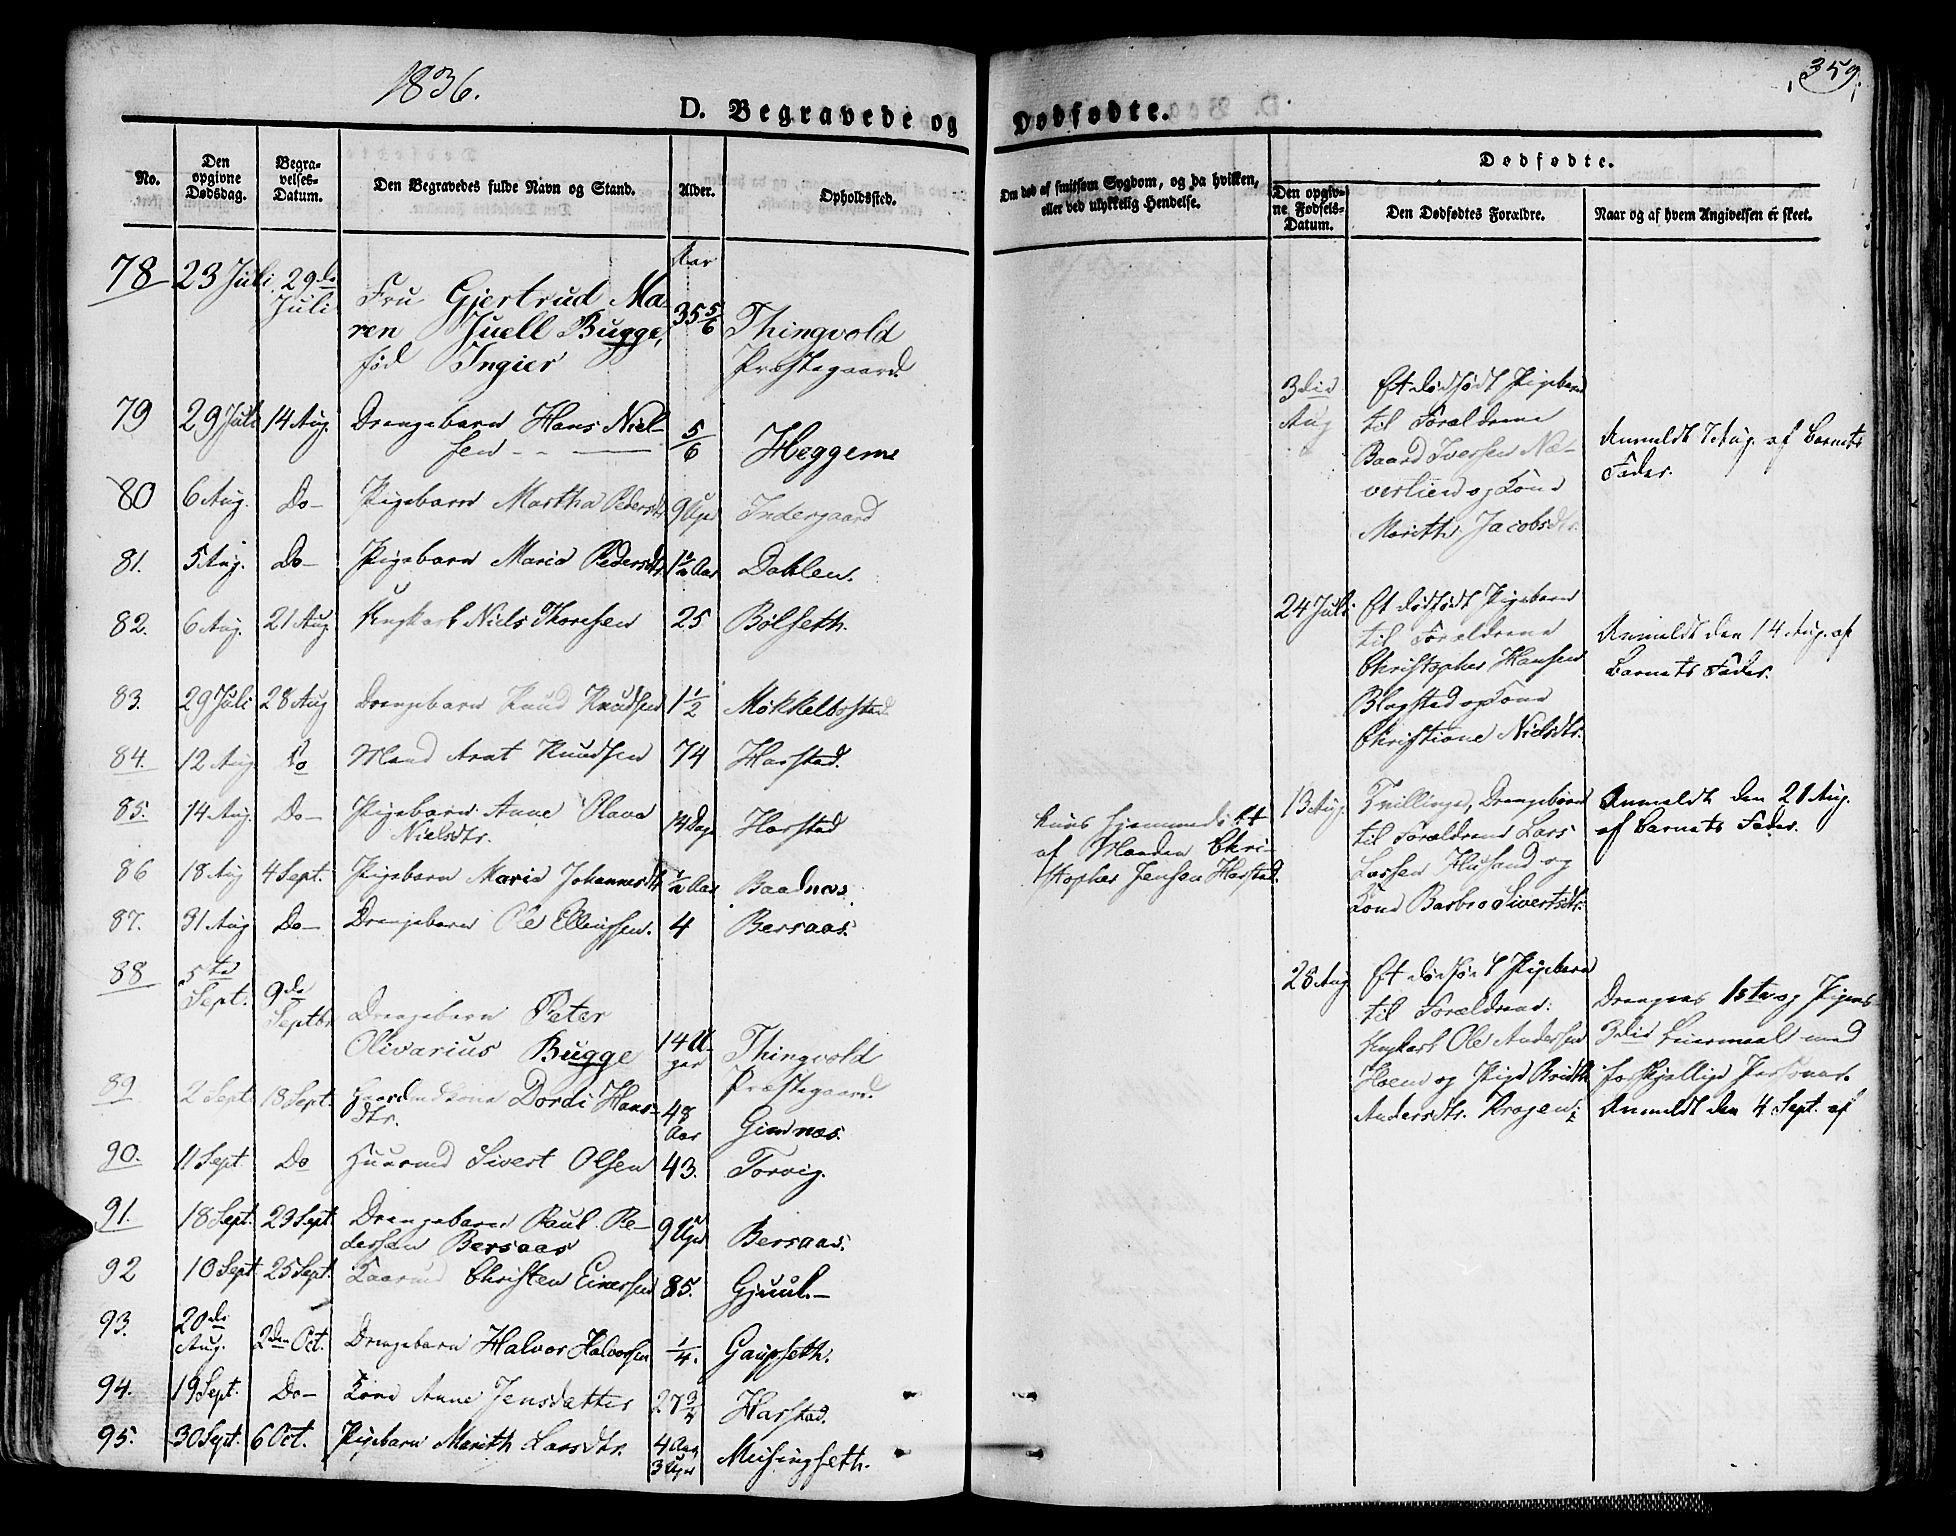 1836.
359.
D. Begravede og Dødfødte.
No.
Den opgivne Dødsdag.
Begravelses-Datum.
Den Begravedes fulde Navn og Stand.
Alder.
Opholdssted.
Om død af smitsom Sygdom, og da hvilken,
eller ved ulykkelig Hendelse.
Dødfødte.
Den opgivne Fødsels-Datum.
Den Dødfødtes Forældre.
Naar og af hvem Angivelsen er skeet.
Aar
78 23 Juli 29de Juli Fru Gjertrud Ma-
ren Juell Bugge, 35 5/6 Thingvold
fød Ingier Præstegaard.
79 29 Juli 14 Aug. Drengebarn Hans Niel-
sen 5/6 Heggem
80 6 Aug. Do Pigebarn Martha Pedersdtr 9 Uger Indergaard
81. 5 Aug. Do Pigebarn Maria Pedersdtr 1 1/2 Aar Dahlen.
82. 6 Aug. 21 Aug. Ungkarl Niels Thoresen 25 Bolseth.
83. 29 Juli 28 Aug Drengebarn Knud Knudsen 1 1/2 Mokkelbostad
84. 12 Aug Do Mand Arnt Knudsen 74 Harstad.
85. 14 Aug. Do Pigebarn Anne Olava
Nielsdtr. 14 Dage Harstad
86 18 Aug 4 Sept. Pigebarn Maria Johannesdtr 1/2 Aar Baadnæs.
87. 31 Aug Do Drengebarn Ole Ellingsen. 4 Bersaas.
88 5te Sept. 9de Septbr Drengebarn Peter
Olivarius Bugge 14 Uger Thingvold
Præstegaard.
89. 2 Sept. 18 Sept. Gaardmdkone Dordi Hans-
dtr. 48 Aar Gimnæs.
90. 11 Sept Do Huusmd Sivert Olsen 43. Torvig.
91. 18 Sept. 29 Sept. Drengebarn Paul Pe-
dersen Bersaas 9 Uger Bersaas.
92 10 Sept 25 Sept. Christen Einersen 85. Gjuul.
93. 20de Aug. 2den Oct. Drengebarn Halvor Halvorsen 1/4. Gaupseth.
94. 19 Sept. Do Kone Anne Jensdatter 27 3/4 Harstad.
95. 30 Sept. 6 Oct. Pigebarn Marith Larsdtr. 4 Aar
3 Uger Meisingseth.
hjemmedøbt
af Manden Chri-
stopher Jensen Harstad.
3die Aug
Et dødfødt Pigebarn
til Forældrene
Baard Iversen Næ-
verlien og Kone
Marith Jacobsdtr.
Anmeldt 7 Aug. af Barnets
Fader.
24 Juli
Et dødfødt Pigebarn
til Forældrene
Christopher Hansen
Blagstad og Kone
Christiane Nielsdtr.
Anmeldt den 14 Aug. af
Barnets Fader.
13 Aug.
Tvillinger, Drengebørn
til Forældrene Lars
Larsen Husund og
Kone Barbro Sivertsdtr.
Anmeldt den 21 Aug.
af Barnets Fader.
28 Aug
Et dødfødt Pigebarn
til Forældrene:
Ungkarl Ole Andersen
Hoem og Pige
Andersdtr. Kragen:
Drengens 1ste og Pigens
3die Leiermaal med
forskjellige Personer.
Anmeldt den 4 Sept. af